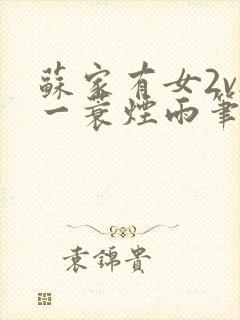 蘇家有女2v
一蓑煙雨筆
袁錦貴